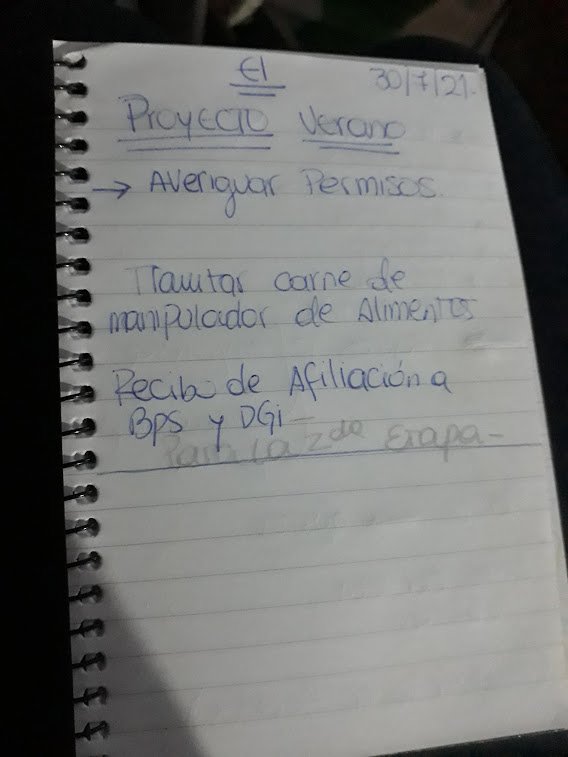 El
30/7/21.
Proyecto Verano
→ Averiguar Permisos.
Tramitar carne de
manipulador de Alimentos
Recibo de Afiliación a
BPS y DGi
Para la 2da Etapa-